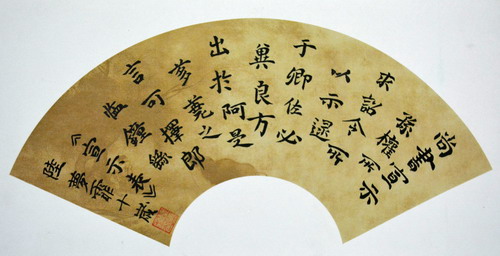 尚書宣示
孫權所
求詔令所
以示逮
于卿佐必
冀良方
出於阿是
芻蕘之
言可擇郎
臨鐘繇
《宣示表》
陸夢霏十歲